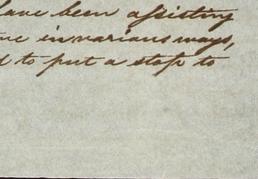 have been assisting
me in various ways,
d to put a stop to